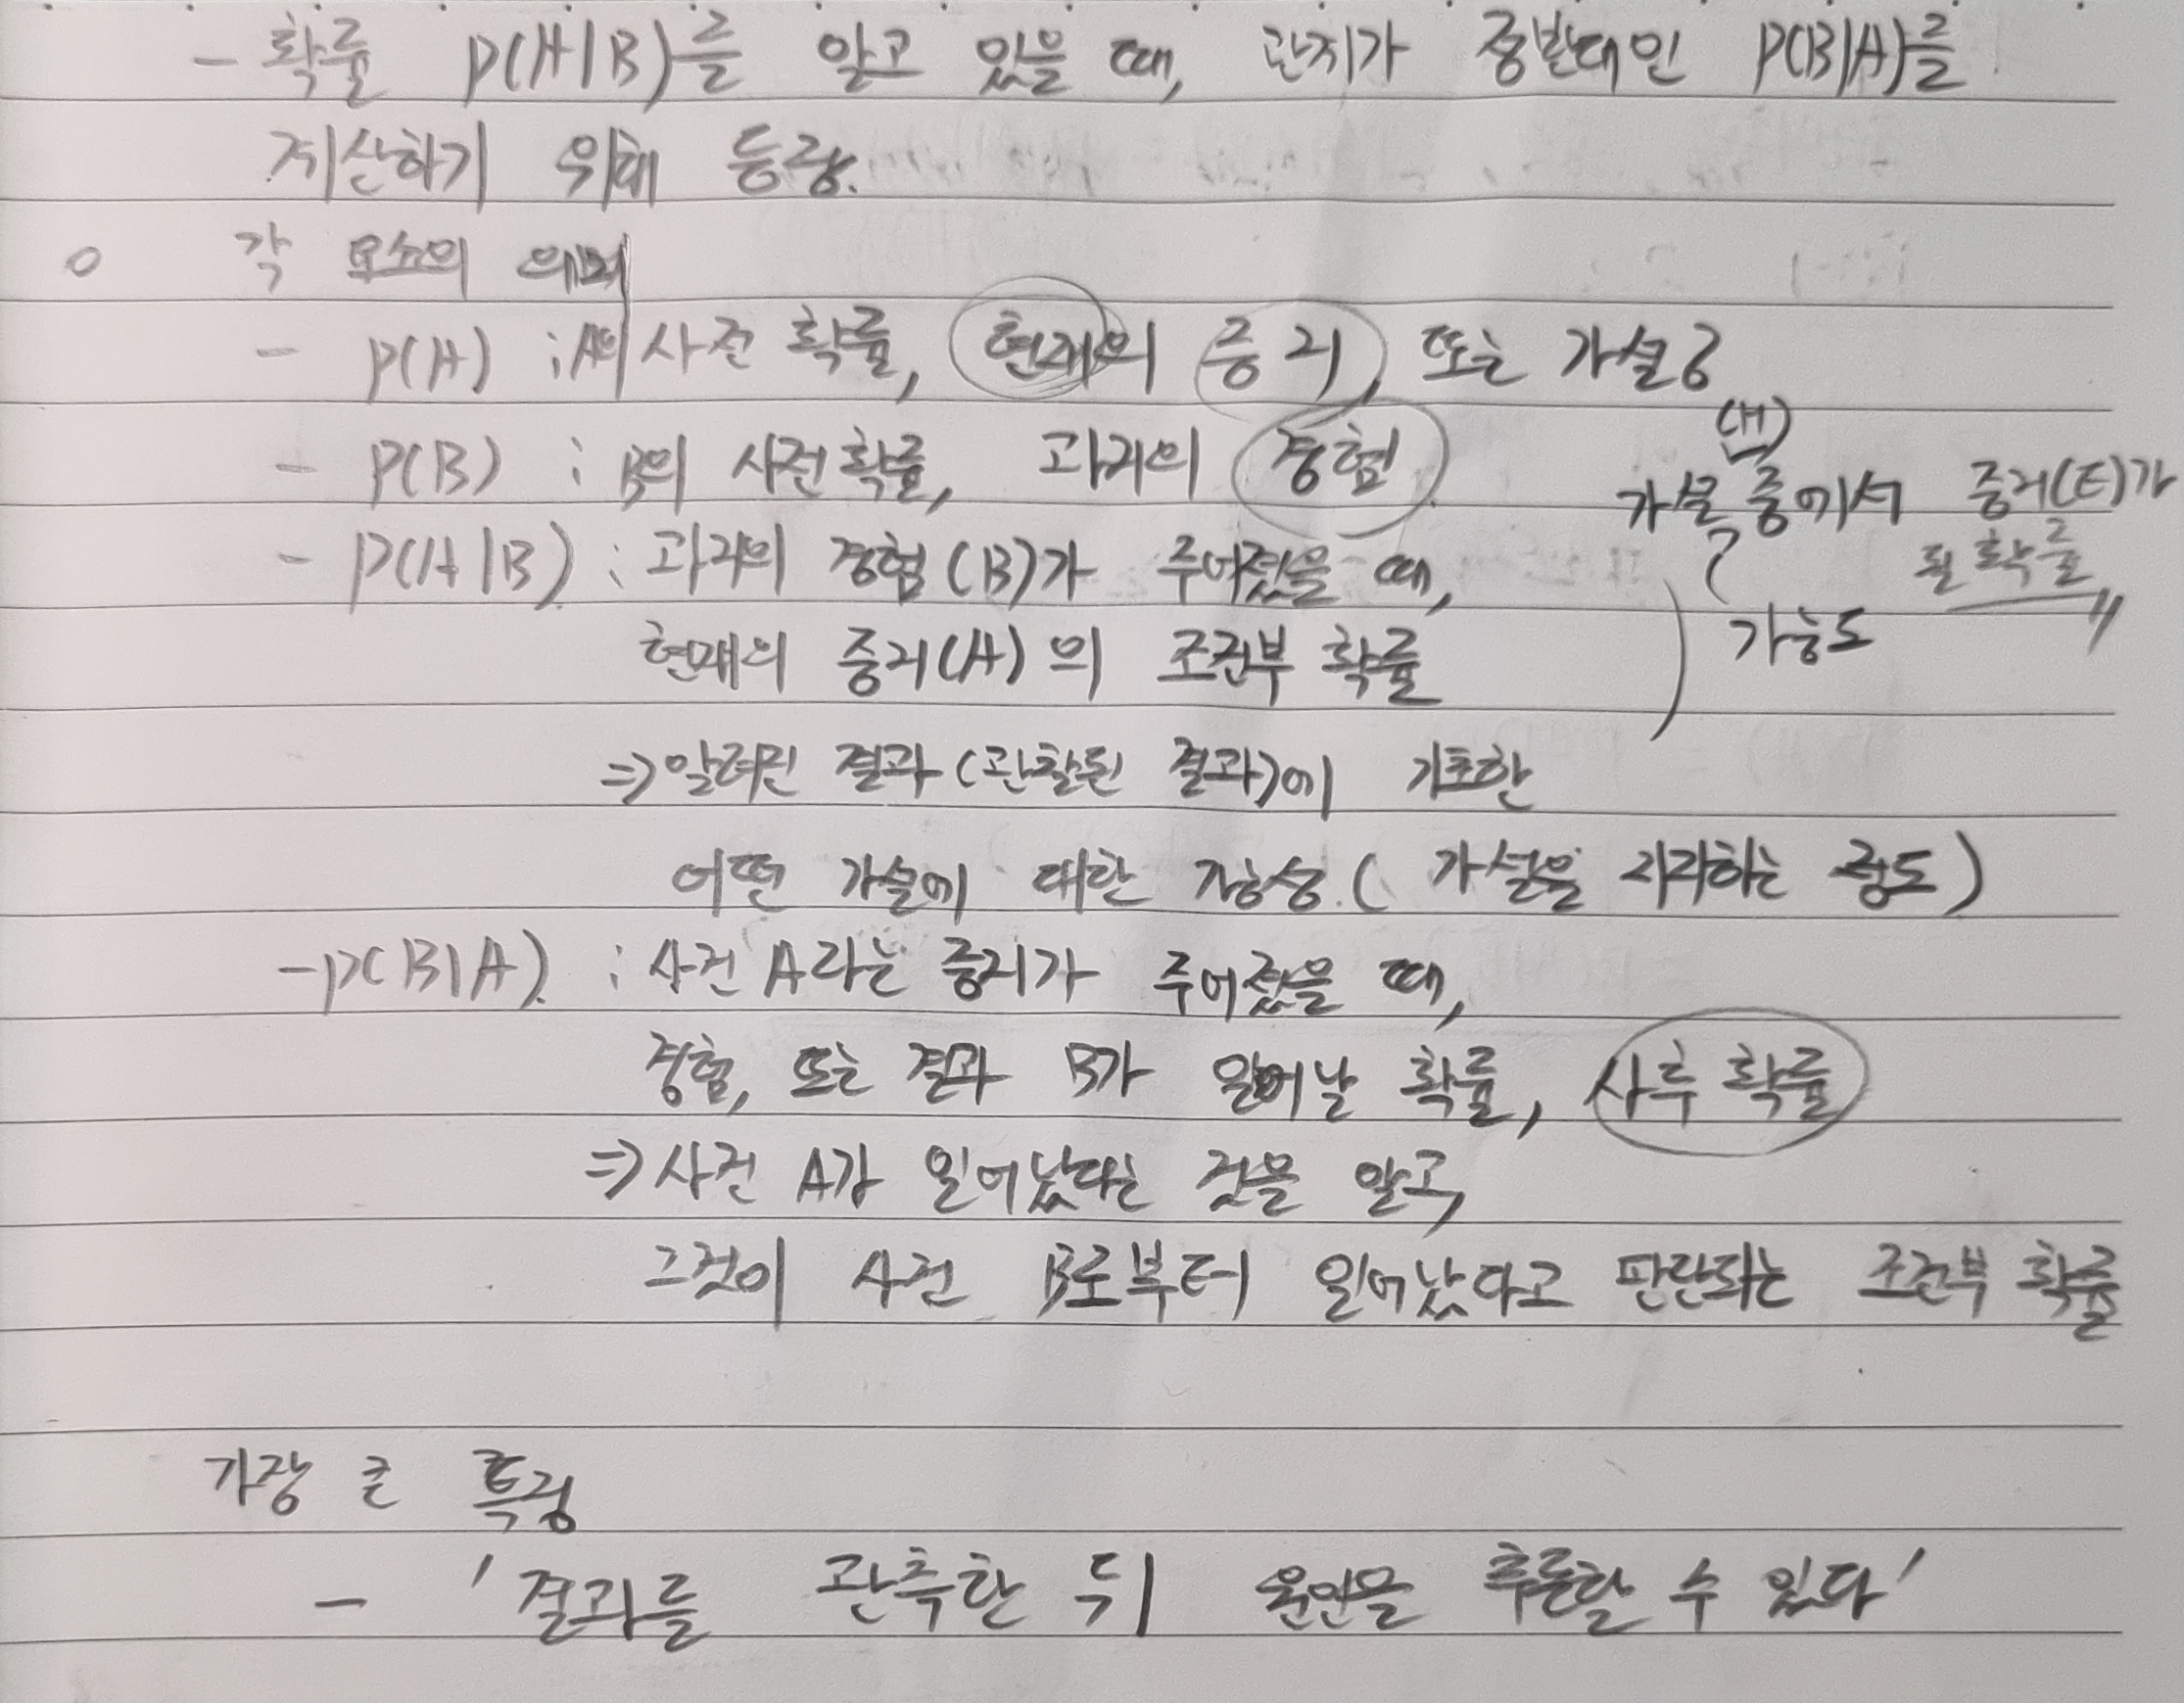 - 확률 P(A|B)를 알고 있을 때, 관계가 정반대인 P(B|A)를
계산하기 위해 등장.
o 각 요소의 의미
- P(A) : A의 사전 확률, 현재의 증거, 또는 가설?
- P(B) : B의 사전확률, 과거의 경험
(H)
가설 중에서 증거(E)가
될 확률
- P(A|B) : 과거의 경험(B)가 주어졌을 때,
현재의 증거(A)의 조건부 확률
가능도
⇒ 알려진 결과(관찰된 결과)에 기초한
어떤 가설에 대한 가능성. (가설을 지지하는 정도)
- P(B|A) : 사건 A라는 증거가 주어졌을 때,
경험, 또는 결과 B가 일어날 확률, 사후 확률
⇒ 사건 A가 일어났다는 것을 알고,
그것이 사건 B로부터 일어났다고 판단되는 조건부 확률
가장 큰 특징
- '결과를 관측한 뒤 원인을 추론할 수 있다'